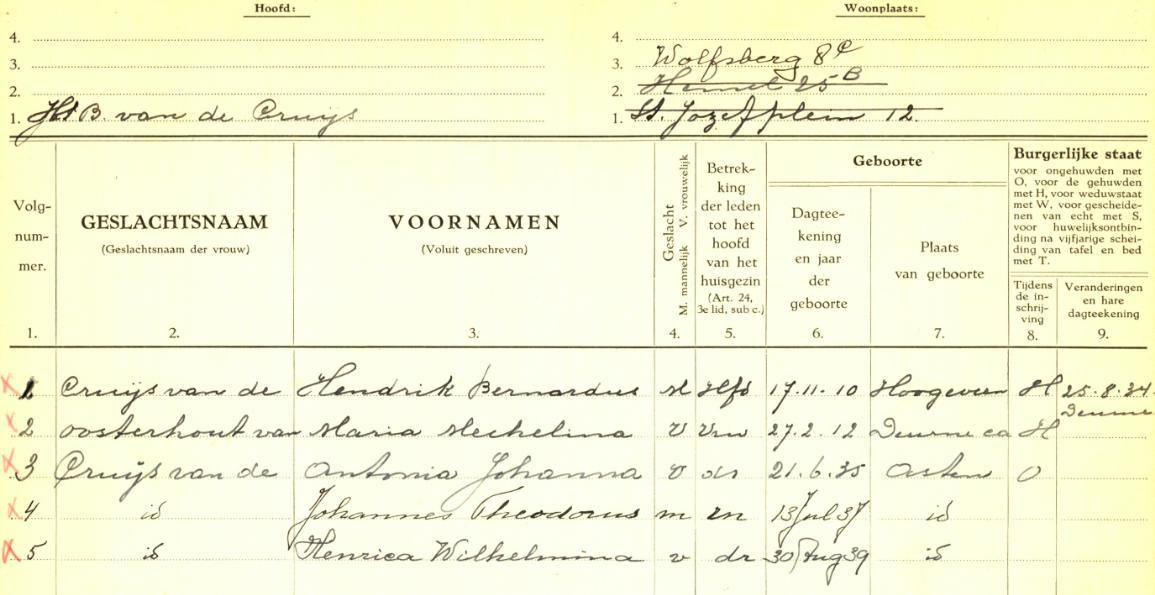 Hoofd:
4.
3.
2.
1. H. B. van de Cruijs
Woonplaats:
4.
3. Wolfsberg 8c
2. Hemel 25B
1. St. Jozefplein 12.
Volg-
num-
mer.
1.
GESLACHTSNAAM
(Geslachtsnaam der vrouw)
2.
VOORNAMEN
(Voluit geschreven)
3.
Geslacht
M. mannelijk V. vrouwelijk
4.
Betrek-
king
der leden
tot het
hoofd
van het
huisgezin
(Art. 24,
3e lid, sub c.)
5.
Geboorte
Dagtee-
kening
en jaar
der
geboorte
6.
Plaats
van geboorte
7.
Burgerlijke staat
voor ongehuwden met
O, voor de gehuwden
met H, voor weduwstaat
met W, voor gescheide-
nen van echt met S,
voor huwelijksontbin-
ding na vijfjarige schei-
ding van tafel en bed
met T.
Tijdens
de in-
schrij-
ving
8.
Veranderingen
en hare
dagteekening
9.
1 Cruijs van de Hendrik Bernardus M Hfd 17.11.10 Hoogeveen H 25.8.34.
Deurne
2 Oosterhout van Maria Mechelina V vrw 27.2.12 Deurne ca H
3 Cruijs van de Antonia Johanna v dr 21.6.35 Asten O
4 id Johannes Theodorus m zn 13 Jul 37 id
5 id Henrica Wilhelmina v dr 30 Aug 39 id